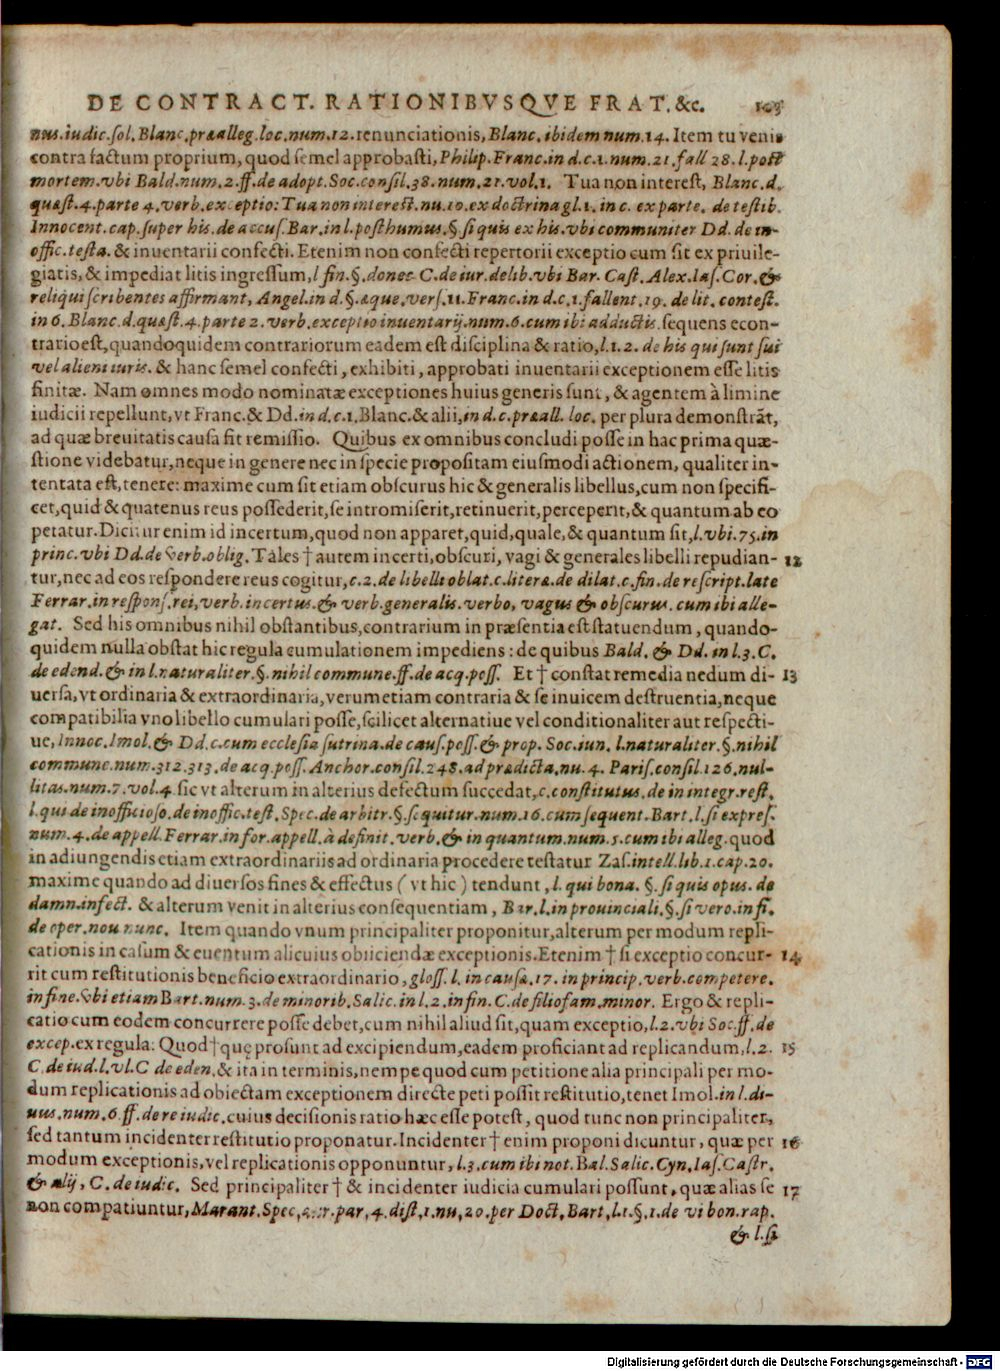 DE CONTRACT. RATIONIBVSQVE FRAT. &c.
nus.iudic.sol. Blanc.præalleg.loc.num.12. renunciationis, Blanc.ibidem num.14. Item tu venis
contra factum proprium, quod semel approbasti, Philip. Franc.in d.c.1.num.21.fall 28.l.post
mortem.vbi Bald.num.2.ff.de adopt.Soc.consil.38.num.21.vol.1. Tua non interest, Blanc.d.
quæst.4.parte 4.verb.exceptio: Tua non interest.nu.10.ex doctrina gl.1.in c. ex parte. de testib.
Innocent.cap.super his.de accus.Bar.in l.posthumus.§.si quis ex his.vbi communiter Dd.de in-
offic.testa. & inuentarii confecti. Etenim non confecti repertorii exceptio cum sit ex priuile-
giatis, & impediat litis ingressum, l fin.§.donec C.de iur.delib.vbi Bar. Cast. Alex.Ias.Cor.&
reliqui scribentes affirmant, Angel.in d.§.æque.vers.11.Franc.in d.c.1.fallent.19. de lit. contest.
in 6. Blanc.d.quæst.4.parte 2.verb.exceptio inuentarij.num.6.cum ibi adductis. sequens econ-
trario est, quandoquidem contrariorum eadem est disciplina & ratio, l.1.2. de his qui sunt sui
vel alieni iuris. & hanc semel confecti, exhibiti, approbati inuentarii exceptionem esse litis
finitæ. Nam omnes modo nominatæ exceptiones huius generis sunt, & agentem à limine
iudicii repellunt, vt Franc.& Dd.in d.c.1.Blanc.& alii, in d.c.præall. loc. per plura demonstrāt,
ad quæ breuitatis causa fit remissio. Quibus ex omnibus concludi posse in hac prima quæ-
stione videbatur, neque in genere nec in specie propositam eiusmodi actionem, qualiter in-
tentata est, tenere: maxime cum sit etiam obscurus hic & generalis libellus, cum non specifi-
cet, quid & quatenus reus possederit, se intromiserit, retinuerit, perceperit, & quantum ab eo
petatur. Dicitur enim id incertum, quod non apparet, quid, quale, & quantum sit, l.vbi.75.in
princ.vbi Dd.de verb.oblig. Tales † autem incerti, obscuri, vagi & generales libelli repudian- 12
tur, nec ad eos respondere reus cogitur, c.2.de libelli oblat.c.literæ.de dilat.c.fin.de rescript.late
Ferrar.in respons.rei, verb.incertus.& verb.generalis.verbo, vagus & obscurus. cum ibi alle-
gat. Sed his omnibus nihil obstantibus, contrarium in præsentia est statuendum, quando-
quidem nulla obstat hic regula cumulationem impediens: de quibus Bald. & Dd. in l.3. C.
de edend. & in l.naturaliter.§.nihil commune.ff.de acq.poss. Et † constat remedia nedum di- 13
uersa, vt ordinaria & extraordinaria, verum etiam contraria & se inuicem destruentia, neque
compatibilia vno libello cumulari posse, scilicet alternatiue vel conditionaliter aut respecti-
ue, Innoc.Imol.& Dd.c.cum ecclesia sutrina.de caus.poss.& prop. Soc.iun. l.naturaliter.§.nihil
commune.num.312.313.de acq.poss. Anchor.consil.248.ad prædicta.nu.4. Paris.consil.126.nul-
litas.num.7.vol.4. sic vt alterum in alterius defectum succedat, c.constitutus.de in integr.rest.
l.qui de inofficioso.de inoffic.test. Spec.de arbitr.§.sequitur.num.16.cum sequent.Bart.l.si expres.
num.4.de appell.Ferrar.in for.appell.à definit.verb.& in quantum.num.5.cum ibi alleg. quod
in adiungendis etiam extraordinariis ad ordinaria procedere testatur Zas.intell.lib.1.cap.20.
maxime quando ad diuersos fines & effectus (vt hic) tendunt, l. qui bona. §. si quis opus. de
damn.infect. & alterum venit in alterius consequentiam, Bar.l.in prouinciali.§.si vero.in fi.
de oper.nou nunc. Item quando vnum principaliter proponitur, alterum per modum repli-
cationis in casum & euentum alicuius obiiciendæ exceptionis. Etenim † si exceptio concur- 14
rit cum restitutionis beneficio extraordinario, gloss.l. in causæ.17.in princip.verb.competere.
in fine.vbi etiam Bart.num.3.de minorib.Salic.in l.2.in fin.C.de filiofam.minor. Ergo & repli-
catio cum eodem concurrere posse debet, cum nihil aliud sit, quam exceptio, l.2.vbi Soc.ff.de
excep.ex regula: Quod † que prosunt ad excipiendum, eadem proficiant ad replicandum, l.2. 15
C.de iud.l.vl.C de eden. & ita in terminis, nempe quod cum petitione alia principali per mo-
dum replicationis ad obiectam exceptionem directe peti possit restitutio, tenet Imol.in l.di-
uus.num.6.ff.de re iudic. cuius decisionis ratio hæc esse potest, quod tunc non principaliter,
sed tantum incidenter restitutio proponatur. Incidenter † enim proponi dicuntur, quæ per 16
modum exceptionis, vel replicationis opponuntur, l.3.cum ibi not. Bal. Salic. Cyn. Ias. Castr.
& alij, C.de iudic. Sed principaliter † & incidenter iudicia cumulari possunt, quæ alias se 17
non compatiuntur, Marant.Spec. par.4.dist.1.nu.20.per Doct. Bart.l.1.§.1.de vi bon.rap.
& l.si
Digitalisierung gefördert durch die Deutsche Forschungsgemeinschaft - DFG